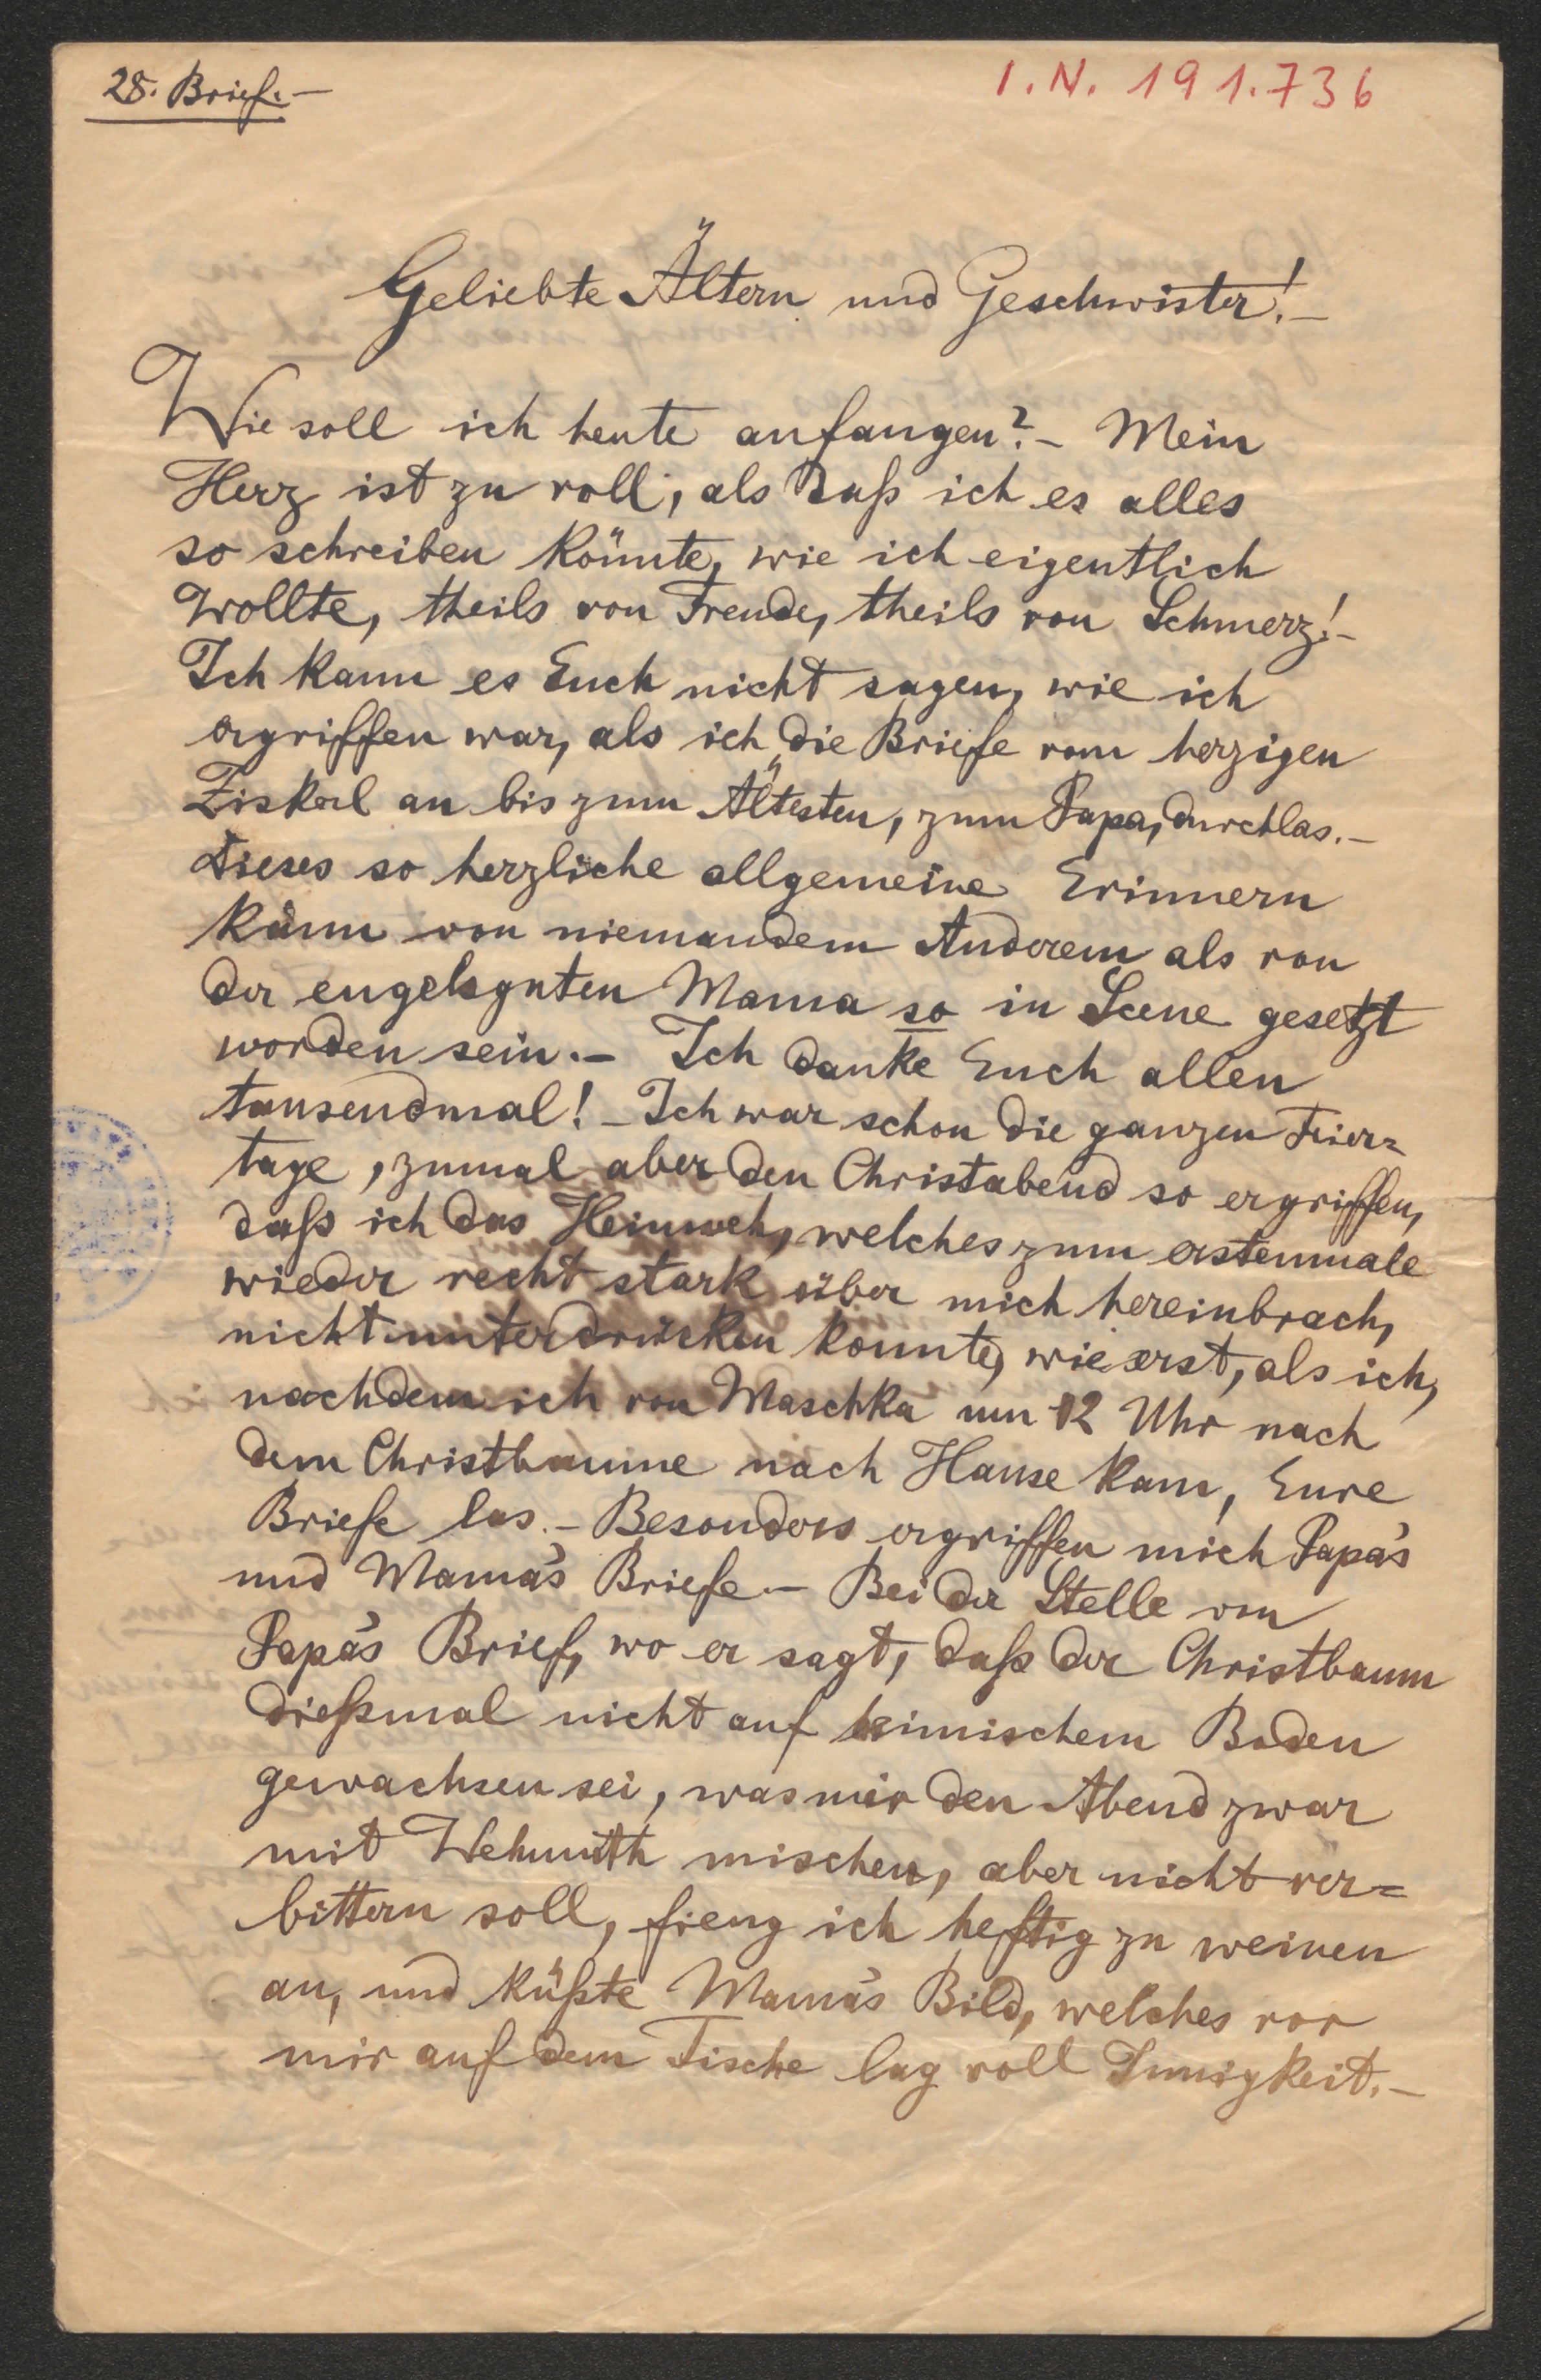 28. Brief.–
I.N. 191.736
Geliebte Ältern und Geschwister!–
Wie soll ich heute anfangen?– Mein
Herz ist zu voll, als daß ich es alles
so schreiben könnte, wie ich eigentlich
wollte, theils von Freude, theils von Schmerz!–
Ich kann es Euch nicht sagen, wie ich
ergriffen war, als ich die Briefe vom herzigen
Ziskerl an bis zum Ältesten, zum Papa, durchlas.–
Dieses so herzliche allgemeine Erinnern
kann von niemandem Anderem als von
der engelsguten Mama so in Scene gesetzt
worden sein.– Ich danke Euch allen
tausendmal!– Ich war schon die ganzen Feier=
tage, zumal aber den Christabend so ergriffen,
daß ich das Heimweh, welches zum erstenmale
wieder recht stark über mich hereinbrach,
nicht unterdrücken konnte, wie erst, als ich,
nachdem ich von Maschka um 12 Uhr nach
dem Christbaume nach Hause kam, Eure
Briefe las.– Besonders ergriffen mich Papa's
und Mama's Briefe.– Bei der Stelle von
Papa's Brief, wo er sagt, daß der Christbaum
dießmal nicht auf heimischem Boden
gewachsen sei, was mir den Abend zwar
mit Wehmuth mischen, aber nicht ver=
bittern soll, fieng ich heftig zu weinen
an, und küßte Mama's Bild, welches vor
mir auf dem Tische lag voll Innigkeit.–